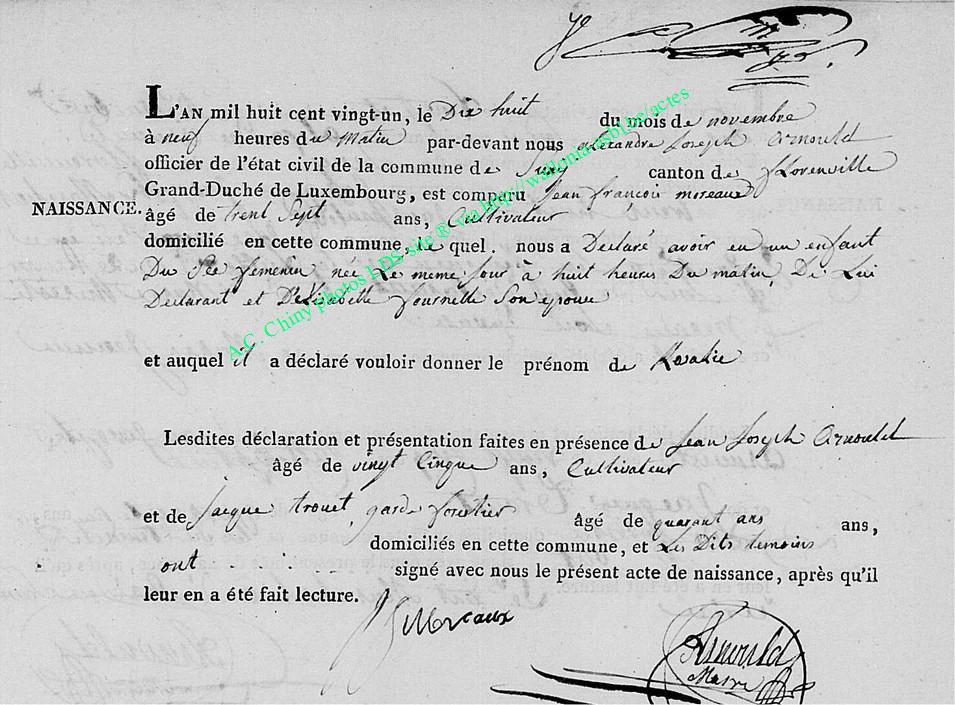 L'AN mil huit cent vingt-un, le Dix huit du mois de novembre
à neuf heures du Matin par-devant nous alexandre Joseph Arnould
officier de l'état civil de la commune de Suxy canton de florenville
Grand-Duché de Luxembourg, est comparu Jean francois moreaux
NAISSANCE. âgé de trent Sept ans, Cultivateur
domicilié en cette commune, le quel nous a Declaré avoir eu un enfant
Du Sexe femenin née Le meme Jour à huit heures Du matin De Lui
Declarant et D'elisabette fournelle Son epouse
et auquel il a déclaré vouloir donner le prénom de Rosalie
Lesdites déclaration et présentation faites en présence de Jean Joseph Arnould
âgé de vingt Cinque ans, Cultivateur
et de Jacque trouet garde forestier âgé de quarant ans ans,
domiciliés en cette commune, et Les Dits temoins
ont signé avec nous le présent acte de naissance, après qu'il
leur en a été fait lecture.
Moreaux
Arnould
Maire
A.C. Chiny photos LDS site ® via http://walloniabsl.be/actes